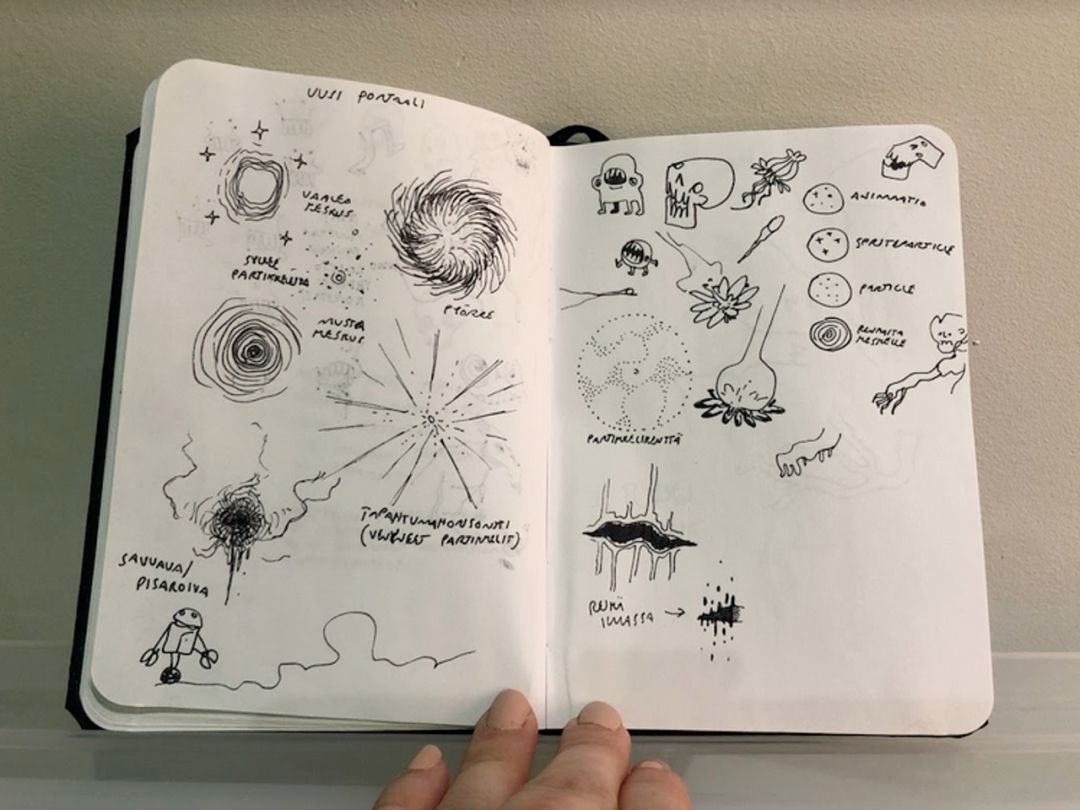 UUSI PORTAALI
VAALEA
KESKUS
SYLKEE
PARTIKKELEITA
MUSTA
KESKUS
PYÖRRE
TAPAHTUMAHORISONTTI
(VENYNEET PARTIKKELIT)
SAVUAVA/
PISAROIVA
ANIMAATIO
SPRITEPARTICLE
PARTICLE
REUNALTA
KESKELLE
PARTIKKELIKENTTÄ
REIKÄ
ILMASSA